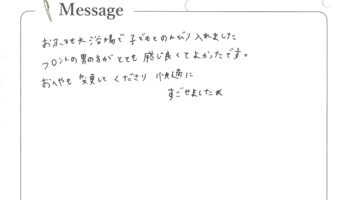 Message
お水も水浴場で子どもとのんびり入れました
フロントの男の方がとても感じ良くてよかったです。
おへやも変更してくださり快適に
すごせました